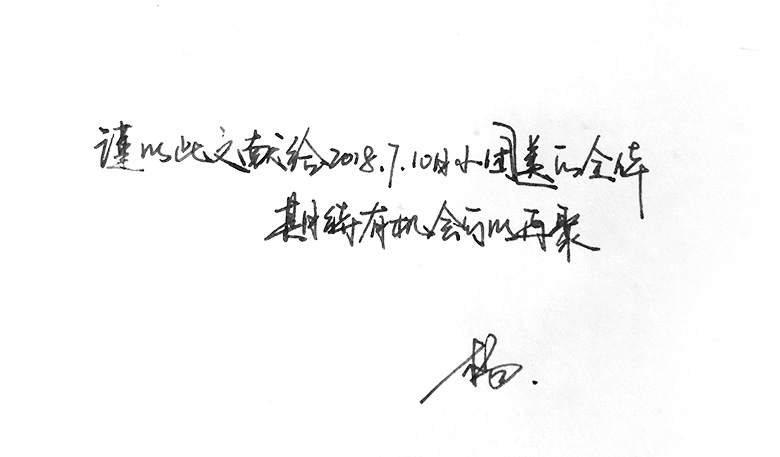 谨以此文献给2018.7.10的小团美的全体
期待有机会可以再聚